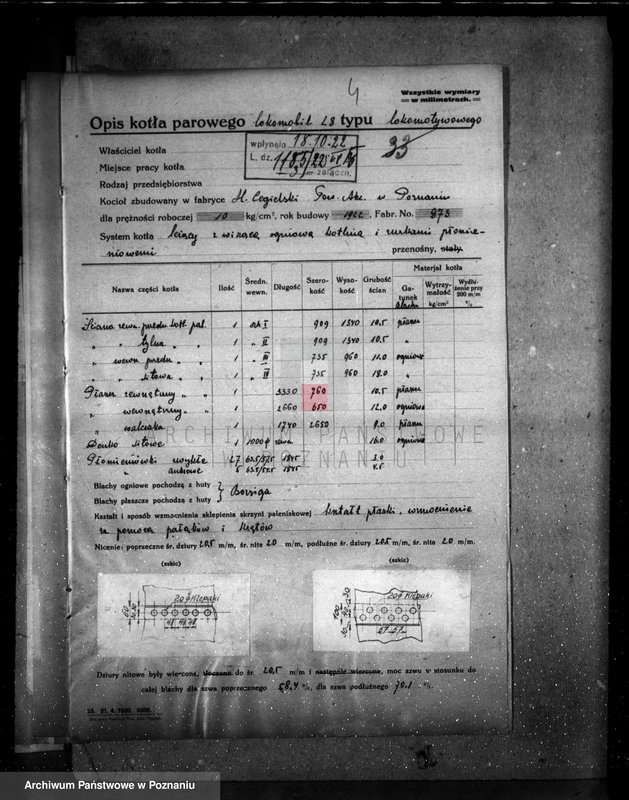 4
Wszystkie wymiary
w milimetrach.
Opis kotła parowego lokomobil L8 typu lokomotywowego
33
Właściciel kotła
wpłynęło 18.10.22
Miejsce pracy kotła
L. dz.
załączn.
Rodzaj przedsiębiorstwa
Kocioł zbudowany w fabryce H. Cegielski Tow. Akc. w Poznaniu
dla prężności roboczej 10 kg/cm², rok budowy 1922, Fabr. No. 873
System kotła leżący z wiszącą ogniową kotliną i rurkami płomie-
niowemi przenośny, stały
Nazwa części kotła Ilość Średn. wewn. Długość Szero-kość Wyso-kość Grubość ścian Materjał kotła
Ga-tunek blacha Wytrzy-małość kg/cm² Wydłu-żenie przy 200 m/m %
Ściana zewn. przedu kotł. pal. 1 ark I 909 1340 10.5 płaszcz
" tylna " 1 " II 909 1340 10.5 "
" wewn. przedu " 1 " III 735 960 11.0 ogniowa
" sitowa " " 1 " IV 735 960 18.0 "
Płaszcz zewnętrzny " " 1 3330 760 10.5 płaszcz
" wewnętrzny " " 1 2660 650 12.0 ogniowa
" walczaka 1 1740 2650 9.0 płaszcz
Denko sitowe 1 1000 φ zewn 16.0 ogniowa
Płomieniówki zwykłe 27 63.5/57.5 1845 3.0
" ankrowe 5 63.5/54.5 1845 4.5
ARCHIWUM PAŃSTWOWE
W POZNANIU
Blachy ogniowe pochodzą z huty
Borsiga
Blachy płaszcza pochodzą z huty
Kształt i sposób wzmocnienia sklepienia skrzyni paleniskowej kształt płaski, wzmocnienie
za pomocą pałąków i
Nicenie: poprzeczne śr. dziury 20.5 m/m, śr. nite 20 m/m, podłużne śr. dziury 20.5 m/m, śr. nita 20 m/m.
(szkic) (szkic)
20 φ Klepaki
60
30 30
48 48 48
20 φ Klepaki
67 67
Dziury nitowe były wiercone, tłoczone do śr. 20.5 m/m i następnie wiercone, moc szwu w stosunku do
całej blachy dla szwa poprzecznego 58.4 %, dla szwa podłużnego 70.1 %.
Archiwum Państwowe w Poznaniu